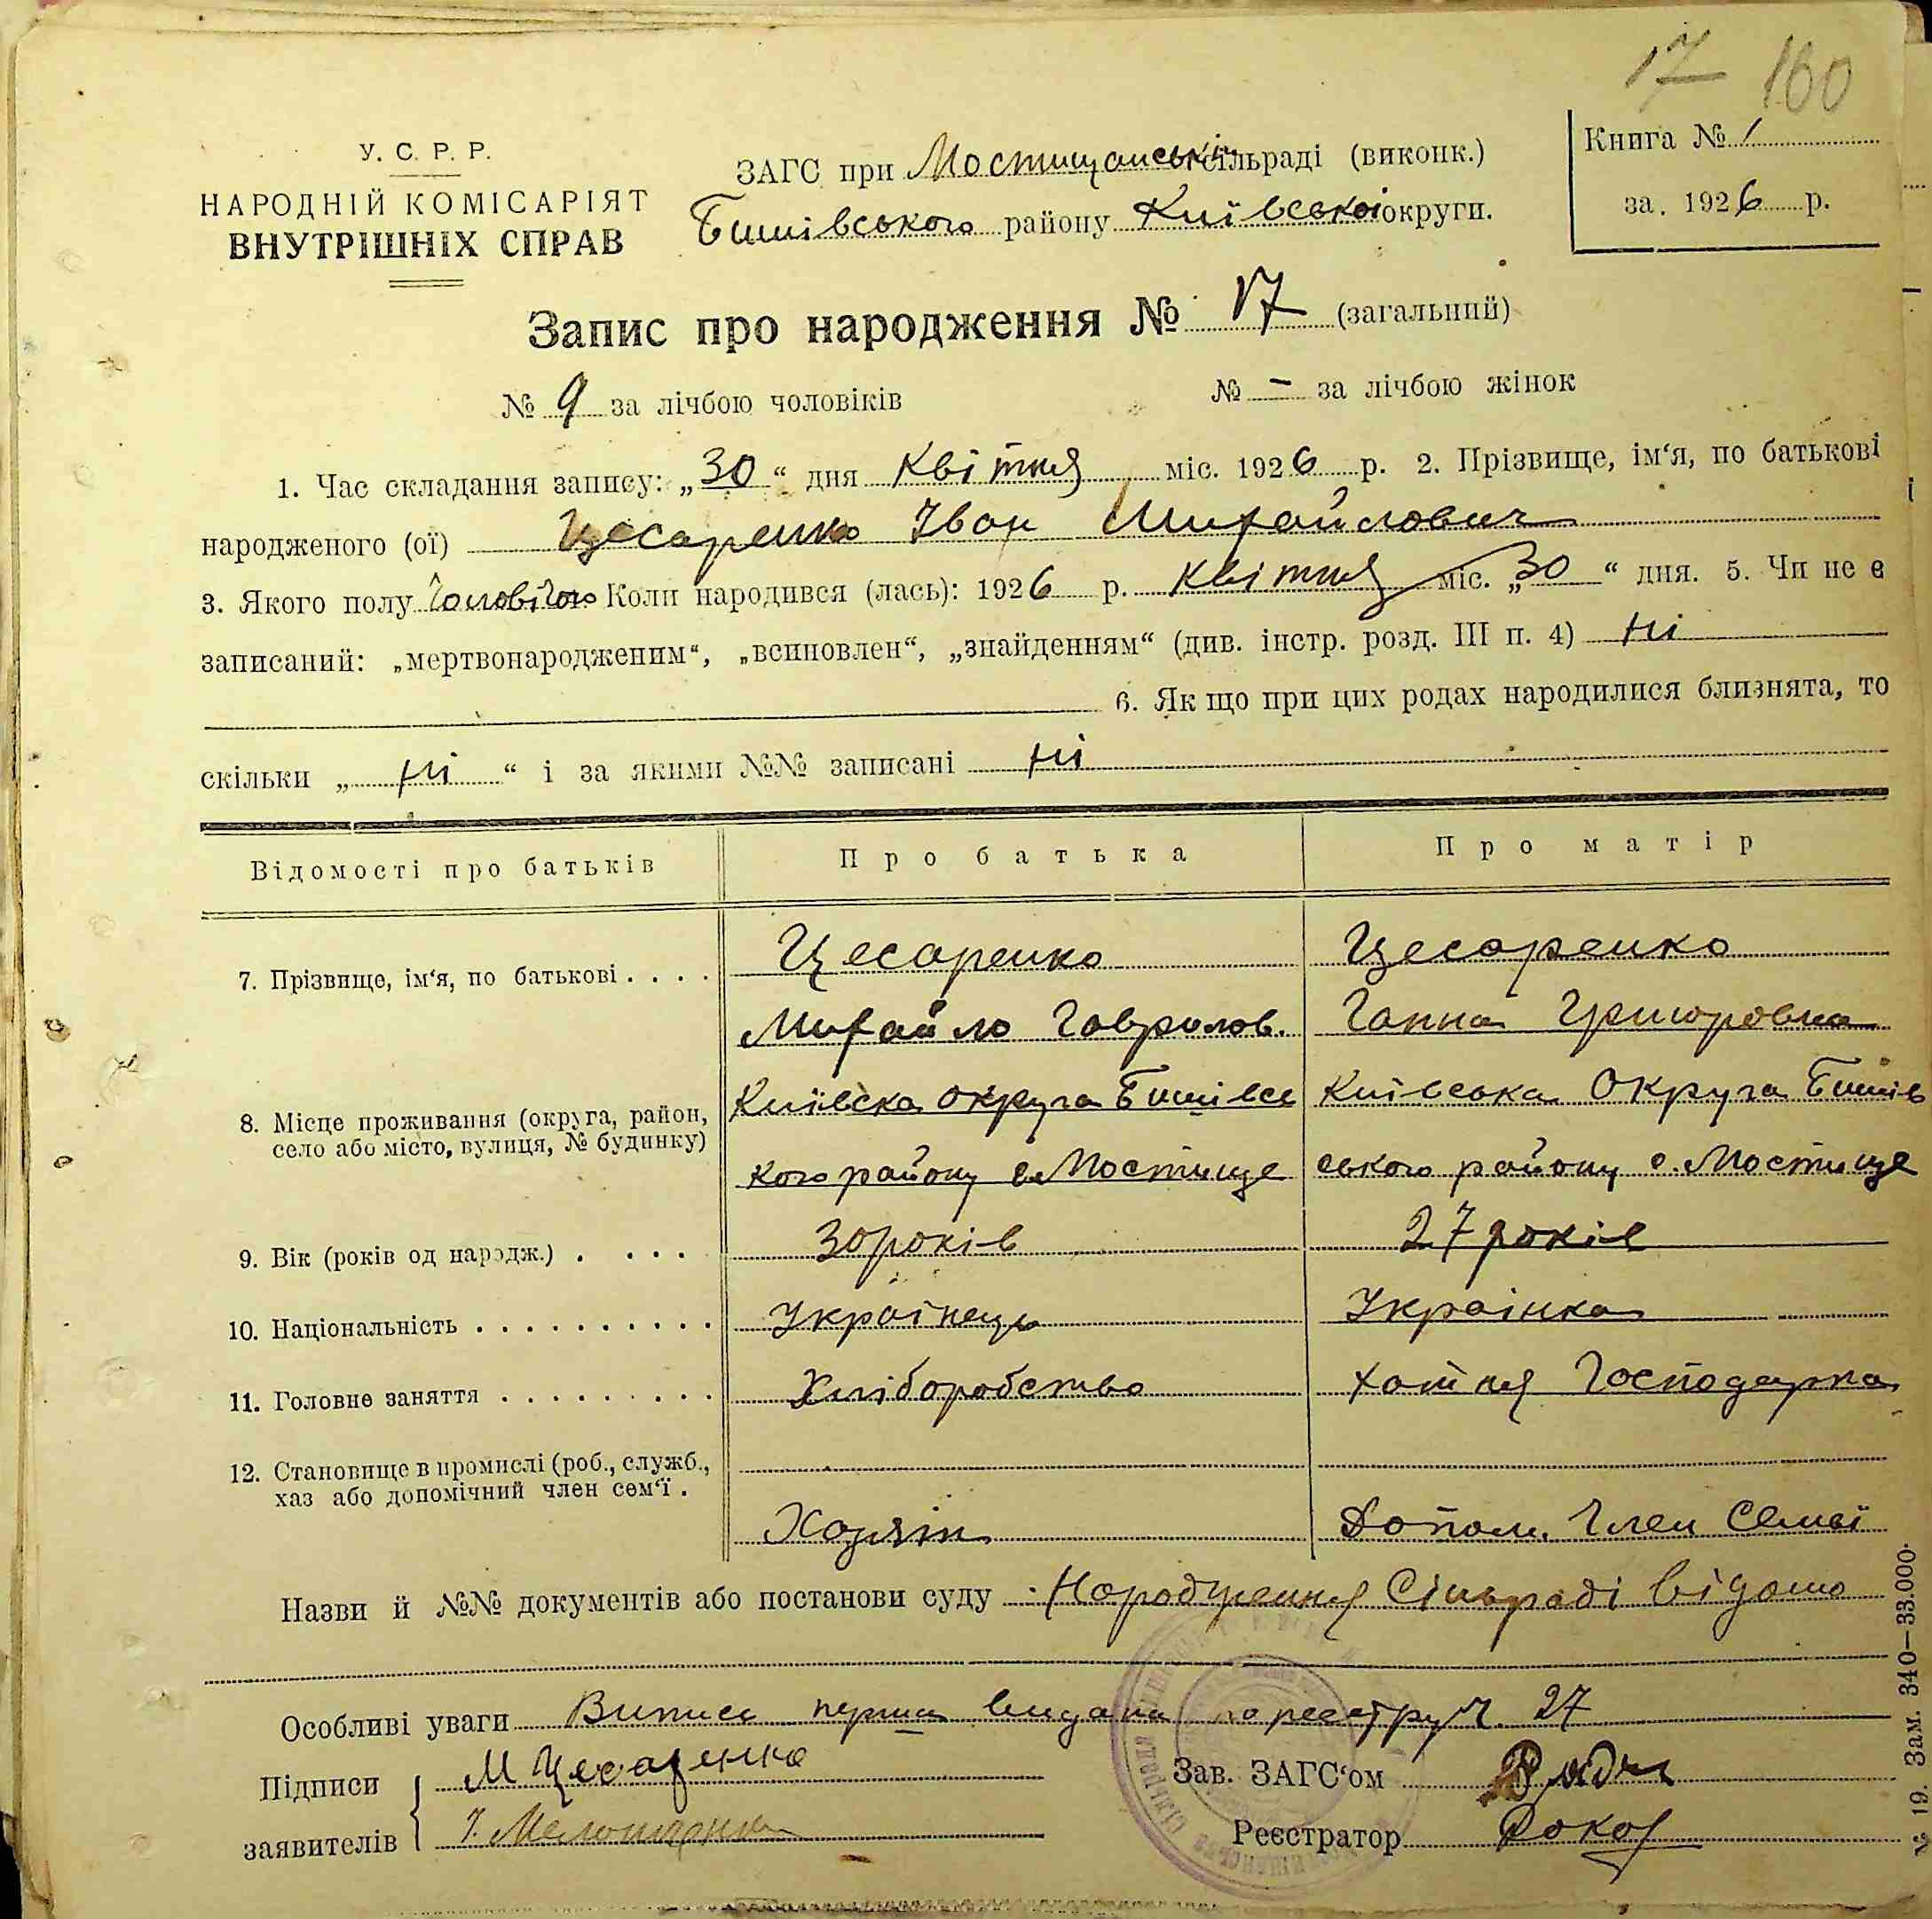 17 160
У. С. Р. Р.
НАРОДНІЙ КОМІСАРІЯТ
ВНУТРІШНІХ СПРАВ
ЗАГС при Мостищанській сільраді (виконк.)
Бишівського району Київської округи.
Книга № 1
за 1926 р.
Запис про народження № 17 (загальний)
№ 9 за лічбою чоловіків № – за лічбою жінок
1. Час складання запису: „30“ дня Квітня міс. 1926 р. 2. Прізвище, ім‘я, по батькові
народженого (ої) Цесаренко Іван Михайлович
3. Якого полу Чоловічого Коли народився (лась): 1926 р. Квітня міс. „30“ дня. 5. Чи не є
записаний: „мертвонародженим“, „всиновлен“, „знайденням“ (див. інстр. розд. III п. 4) ні
6. Як що при цих родах народилися близнята, то
скільки „ні“ і за якими №№ записані ні
Відомості про батьків Про батька Про матір
7. Прізвище, ім‘я, по батькові . . . . Цесаренко Цесаренко
Михайло Гаврилов. Ганна Григоровна
8. Місце проживання (округа, район, село або місто, вулиця, № будинку) Київска округа Бишівсь Київська Округа Бишів
кого району с. Мостище ського району с. Мостище
9. Вік (років од народж.) . . . . 30 років 27 років
10. Національність . . . . . . . . . . Українець Українка
11. Головне заняття . . . . . . . . . Хліборобство хатня Господарка
12. Становище в промислі (роб., служб.,
хаз або допомічний член сем‘ї . Хазяін Допом. Член Семьї
Назви й №№ документів або постанови суду Народження Сільраді відомо
Особливі уваги Випись перша видана по реестру Ч. 27
Підписи М Цесаренко Зав. ЗАГС‘ом
заявителів Реєстратор
№ 19. Зам. 340—33.000.